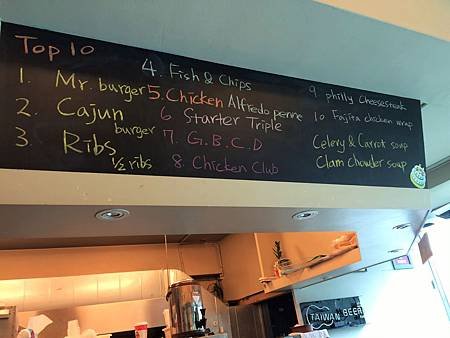 Top 10
1. Mr. burger
2. Cajun
burger
3. Ribs
½ ribs
4. Fish & Chips
5. Chicken Alfredo penne
6 Starter Triple
7. G.B.C.D
8. Chicken Club
9. philly Cheesesteak
10 Fajita chicken wrap
Celery & Carrot soup
Clam chowder soup
TAIWAN BEER